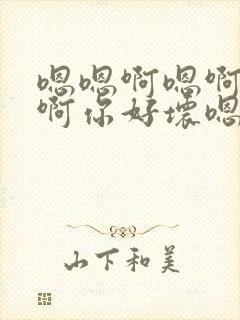 嗯嗯啊嗯啊
啊你好坏嗯
山下和美